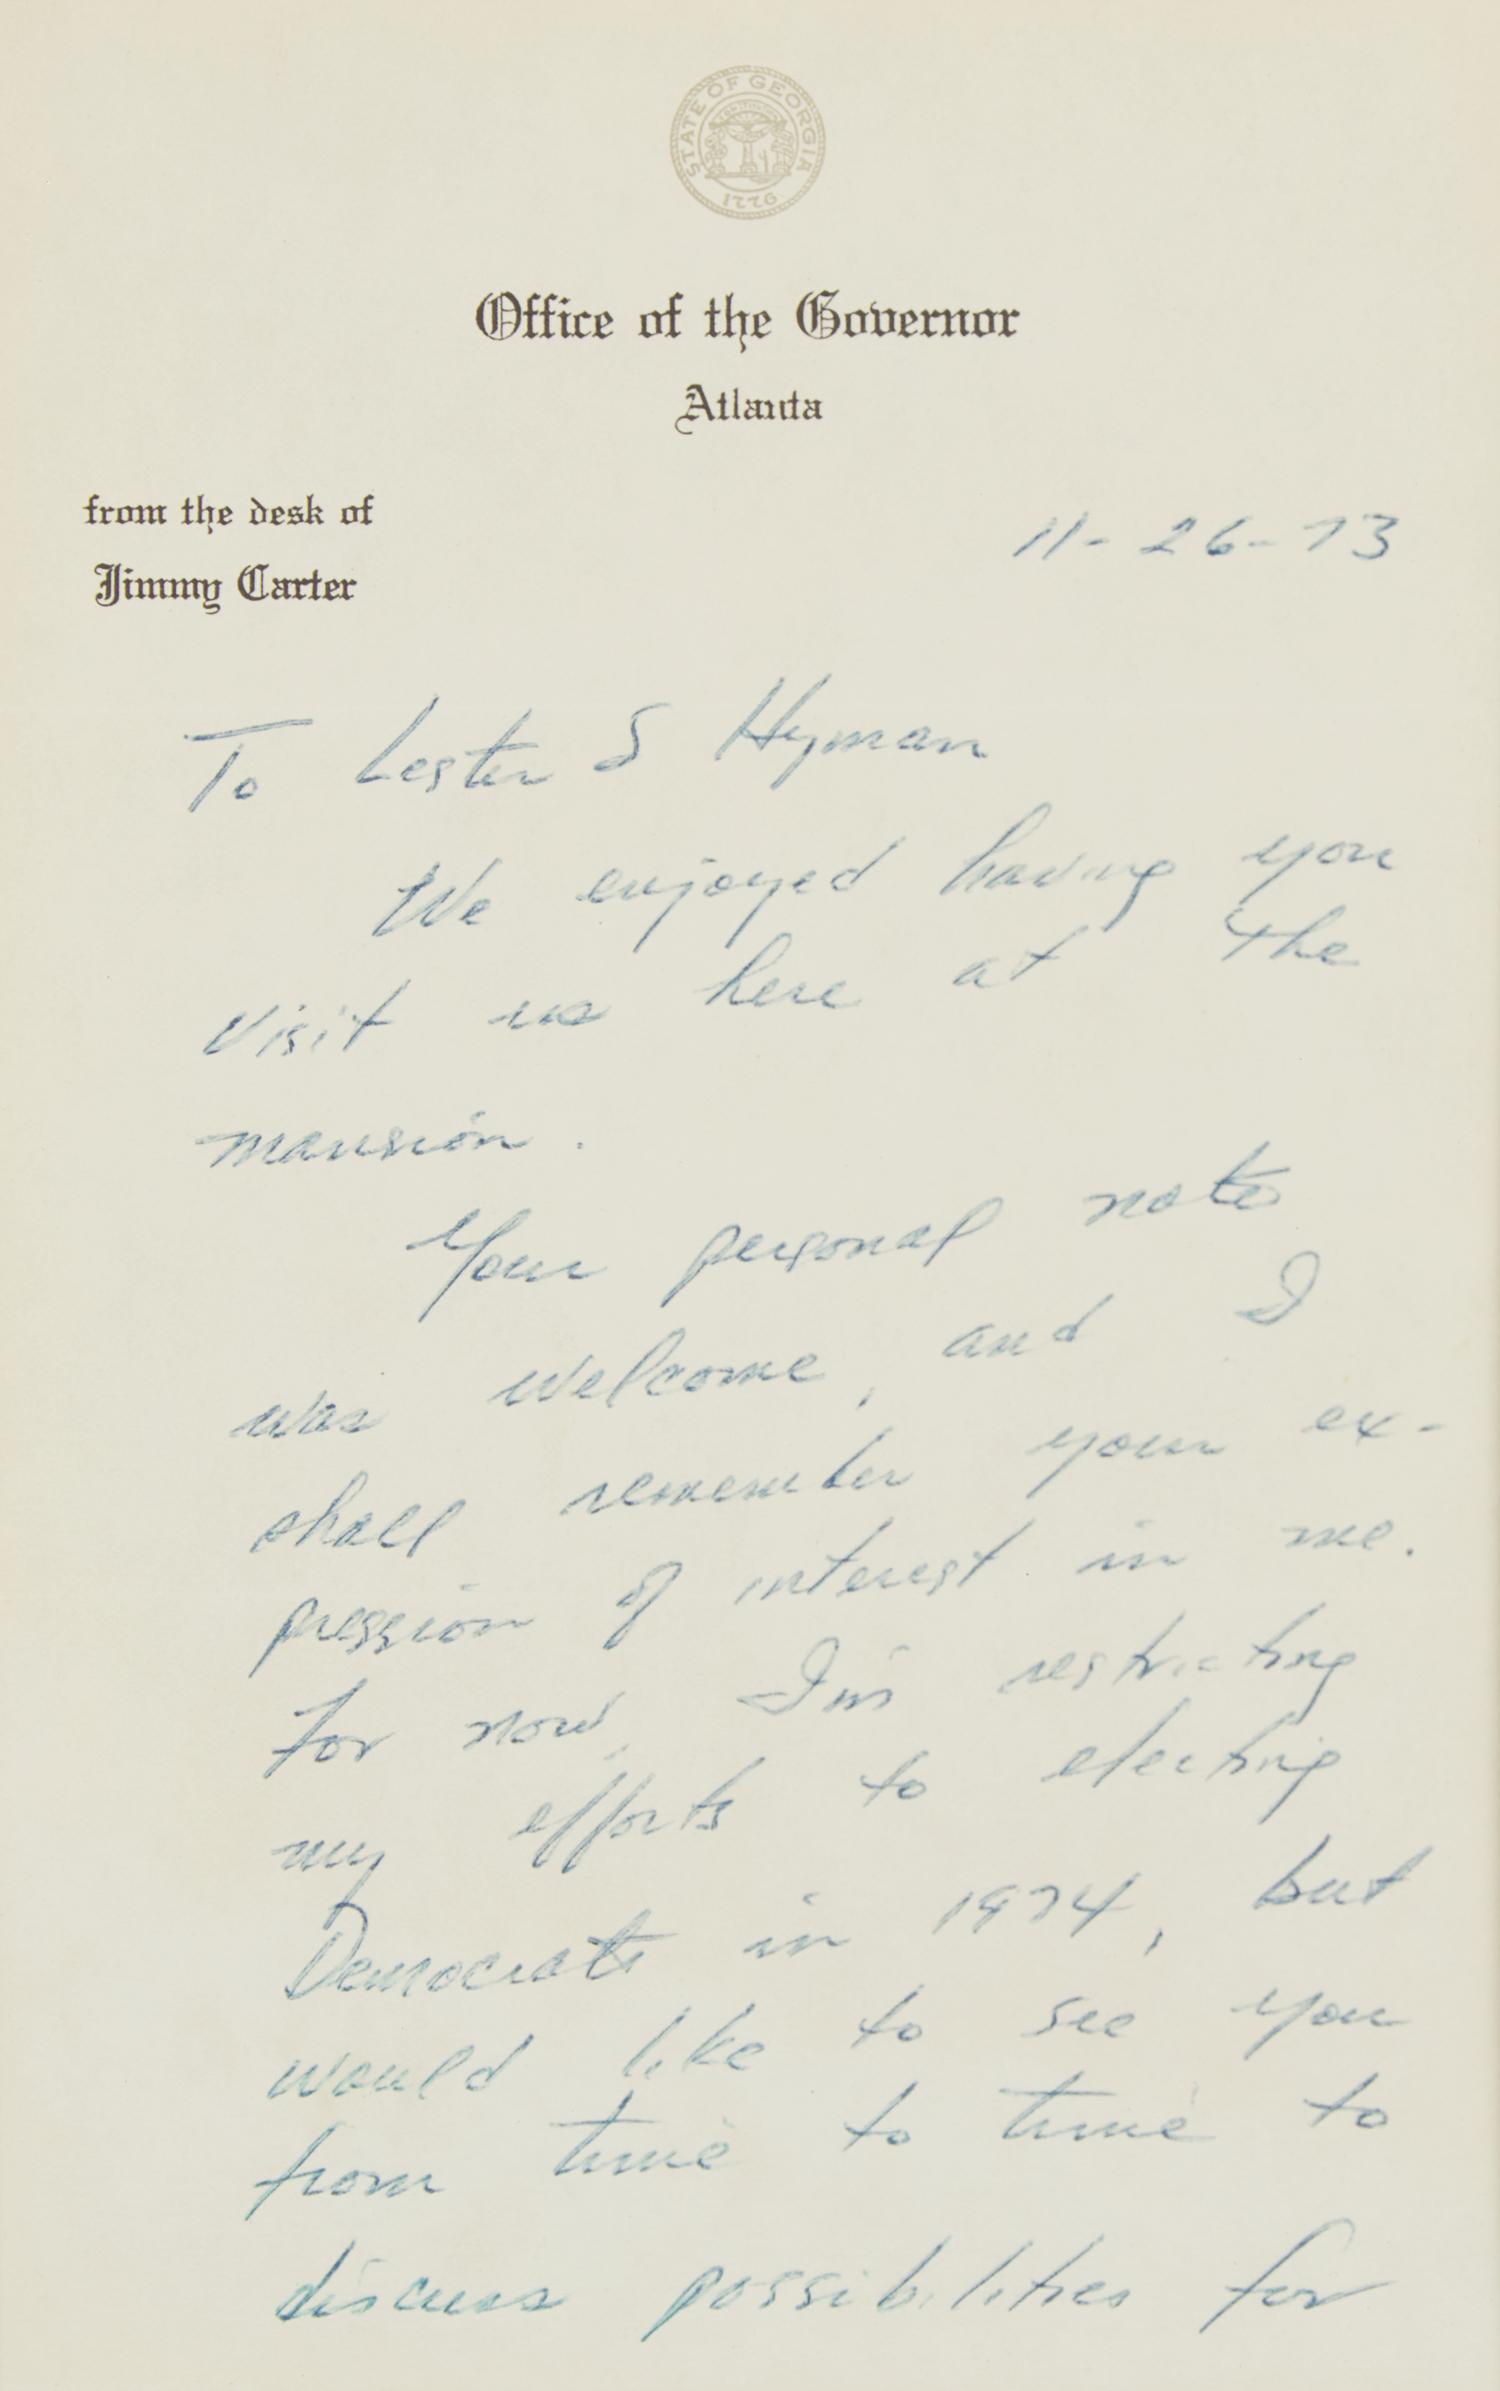 STATE OF GEORGIA
CONSTITUTION
1776
Office of the Governor
Atlanta
from the desk of
Jimmy Carter
11-26-73
To Lester S Hyman
We enjoyed having you
visit us here at the
mansion.
Your personal note
was welcome, and I
shall remember your ex-
pression of interest in me.
For now, I'm restricting
my efforts to electing
Democrats in 1974, but
would like to see you
from time to time to
discuss possibilities for